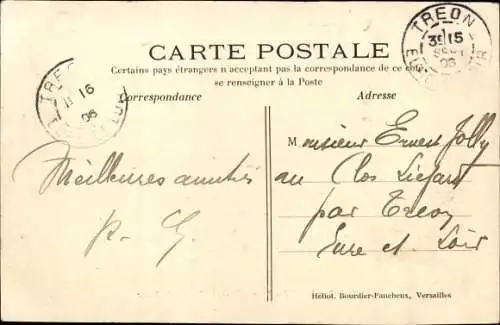 TREON
3E 15
06
EURE-ET-LOIR
CARTE POSTALE
Certains pays étrangers n'acceptant pas la correspondance de ce côté,
se renseigner à la Poste
TREON
15
06
Correspondance
Adresse
Monsieur Ernest Jolly
au Clos Liégard
par Tréon
Eure et Loir
Meilleures amitiés
R. G.
Héliot. Bourdier-Faucheux, Versailles